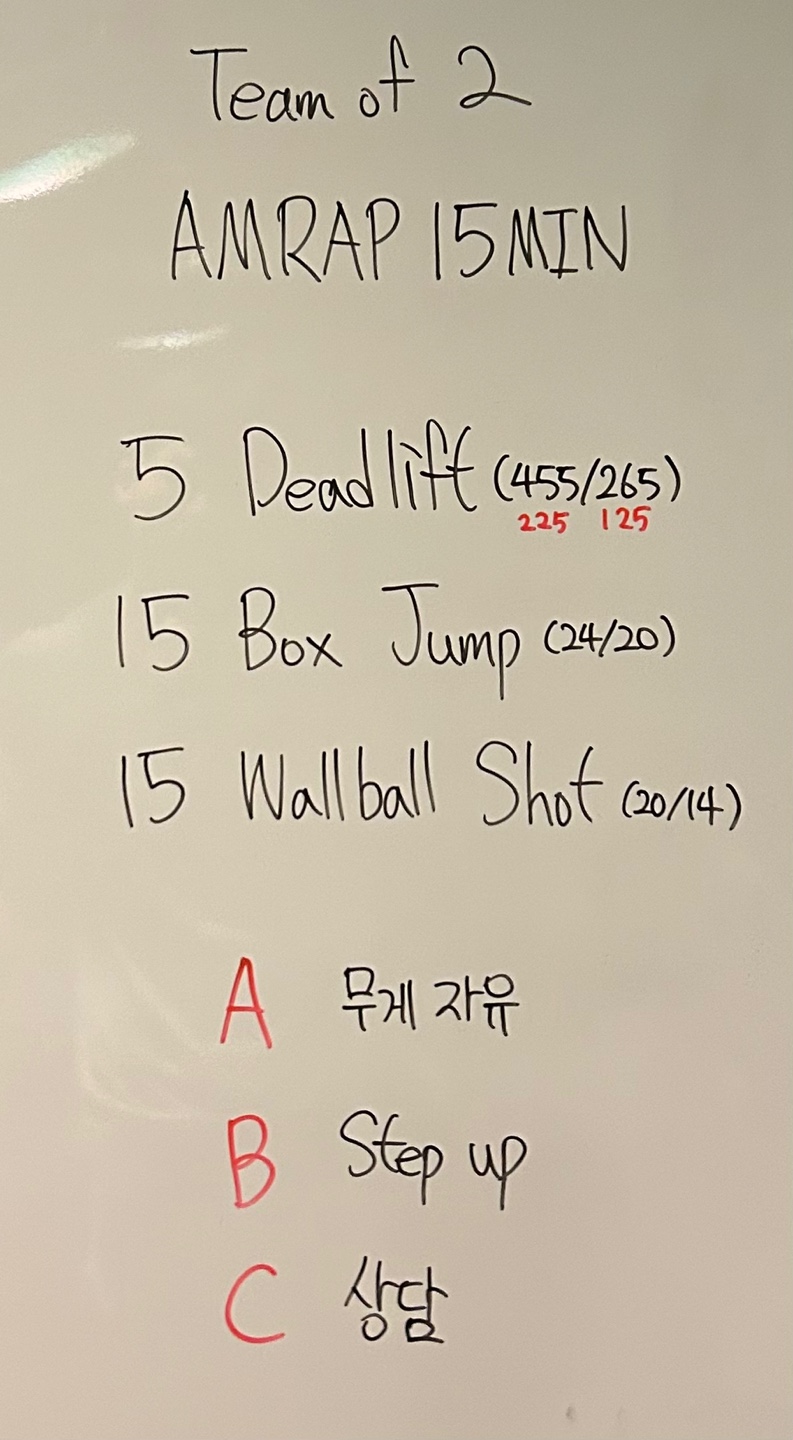 Team of 2
AMRAP 15MIN
5 Deadlift (455/265)
225 125
15 Box Jump (24/20)
15 Wallball Shot (20/14)
A 무게 자유
B Step up
C 상담